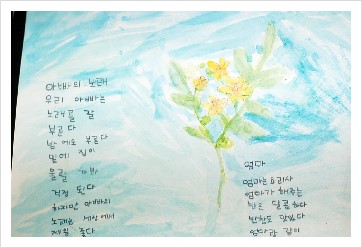 아빠의 노래
우리 아빠는
노래를 잘
부른다
밤에도 부른다
밑에 집이
올릴까봐
걱정 된다
하지만 아빠의
노래는 세상에서
제일 좋다
엄마
엄마는 요리사
엄마가 해주는
밥은 달콤하다
반찬도 맛있다
엄마랑 같이